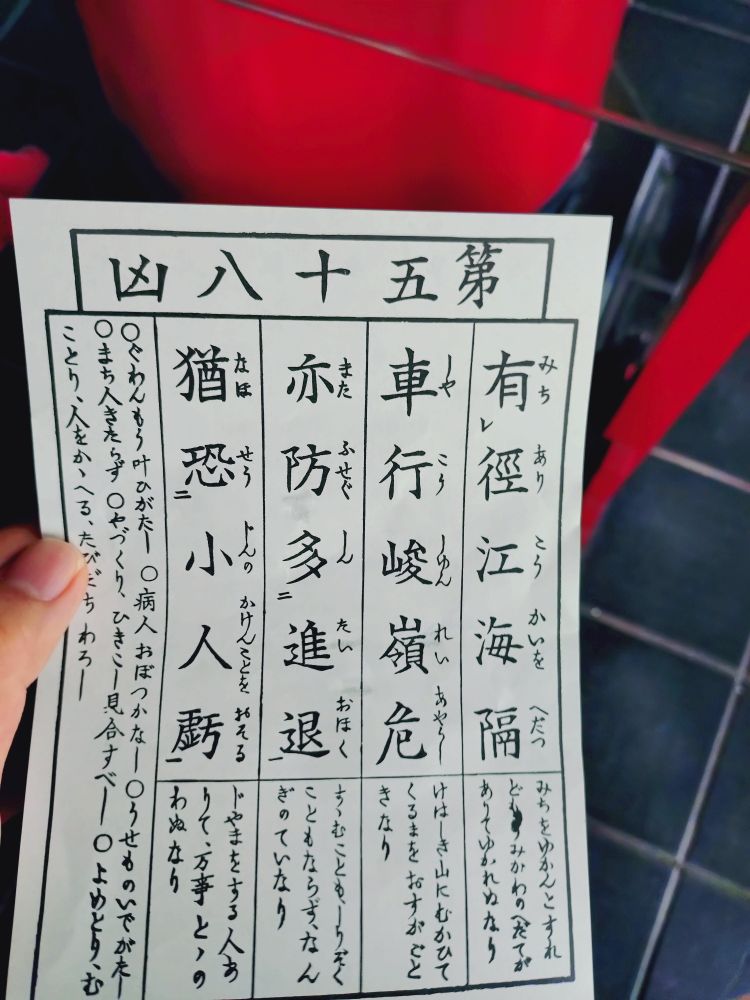 第五十八凶
みち あり こう かいを へだつ
有レ徑江海隔
みちをゆかんとすれ
どもうみかわのへだてが
ありてゆかれぬなり
しや こう しゆん れい あやうし
車行峻嶺危
けはしき山にむかひて
くるまをおすがごと
きなり
また ふせぐ しん たい おほく
亦防二多進退一
すゝむことも、しりぞく
こともならず、なん
ぎのていなり
なほ せう じんの かけんことを おそる
猶恐二小人虧一
じやまをする人あ
りて、万事とゝの
わぬなり
○ぐわんもう叶ひがたし ○病人おぼつかなし ○うせものいでがたし
○まち人きたらず ○やづくり、ひきこし見合すべし ○よめとり、む
ことり、人をかゝへる、たびだちわろし